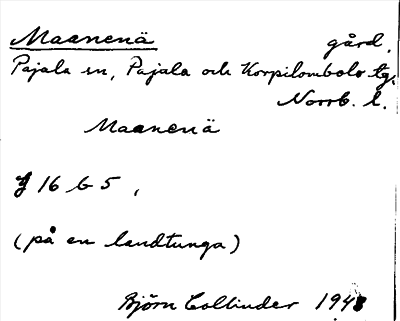 Maanenä gård,
Pajala sn, Pajala och Korpilombolo tg,
Norrb. l.
Maanenä
J 16 b 5,
(på en landtunga)
Björn Collinder 1948